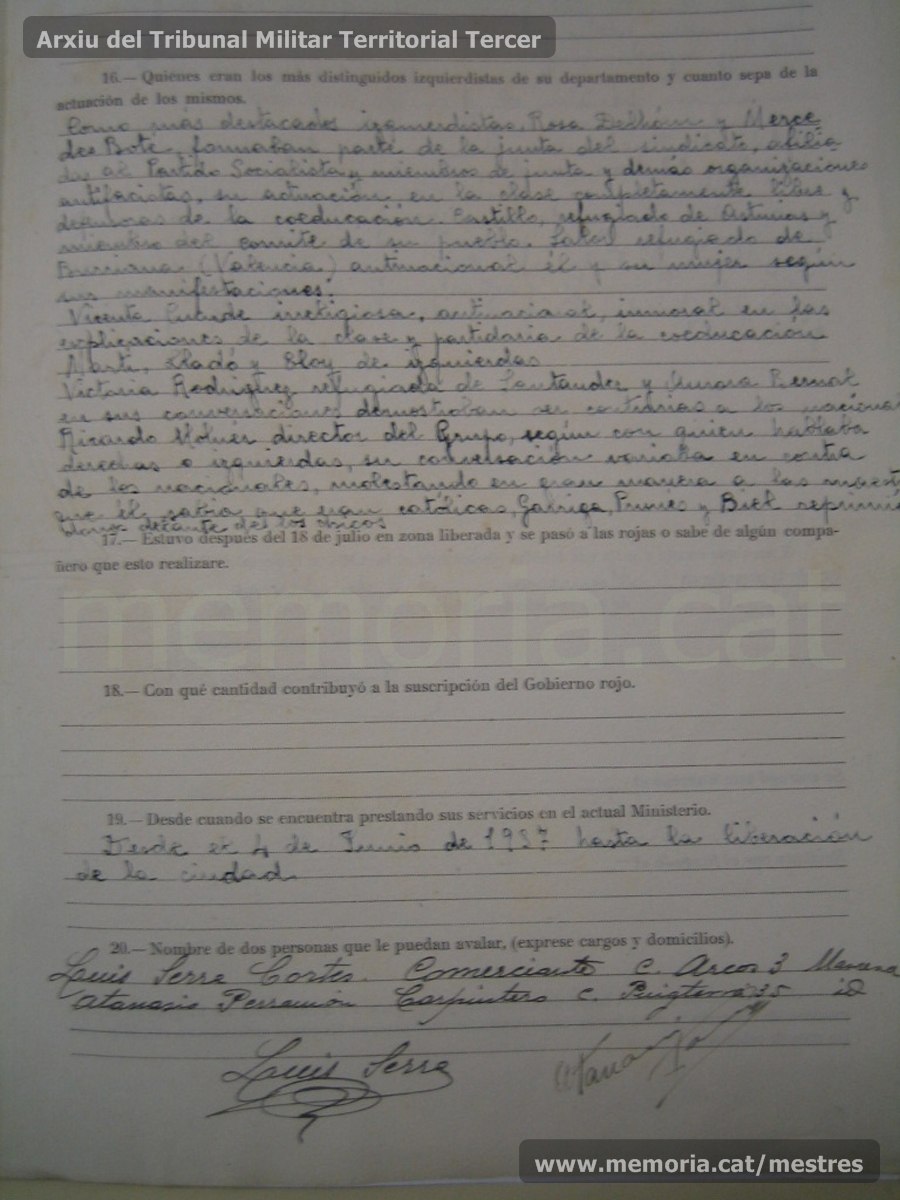 Arxiu del Tribunal Militar Territorial Tercer
16.— Quiénes eran los más distinguidos izquierdistas de su departamento y cuanto sepa de la
actuación de los mismos.
Como más destacados izquierdistas, Rosa y Merce
des Boté, formaban parte de la junta del sindicato, afilia
das al Partido Socialista y miembros de junta y demás organizaciones
antifacistas, su actuación en la clase completamente libre y
defensoras de la coeducación. Castillo, refugiado de Asturias y
miembro del comite de su pueblo. refugiado de
Burriana (Valencia) antinacional él y su mujer según
sus manifestaciones.
Vicenta irreligiosa, antinacional, inmoral en las
explicaciones de la clase y partidaria de la coeducación
Marti, Lladó y Eloy de izquierdas
Victoria Rodriguez refugiada de Santander y Bernal
en sus conversaciones demostraban ser contrarias a los naciona
Ricardo Molner director del Grupo, según con quien hablaba
derechas o izquierdas, su conversación variaba en contra
de los nacionales, molestando en gran manera a las maest
que él sabia que eran católicas, Garriga, Prunés y Biel reprimi
delante de los chicos
17.— Estuvo después del 18 de julio en zona liberada y se pasó a las rojas o sabe de algún compa-
ñero que esto realizare.
memoria.cat
18.— Con qué cantidad contribuyó a la suscripción del Gobierno rojo.
19.— Desde cuando se encuentra prestando sus servicios en el actual Ministerio.
Desde el 4 de Junio de 1937 hasta la liberación
de la ciudad.
20.— Nombre de dos personas que le puedan avalar, (exprese cargos y domicilios).
Luis Serra Cortés. Comerciante c. Arcos 3 Manresa
Atanasio Perramón Carpintero c. Puigterrá 35 id
Luis Serra
www.memoria.cat/mestres